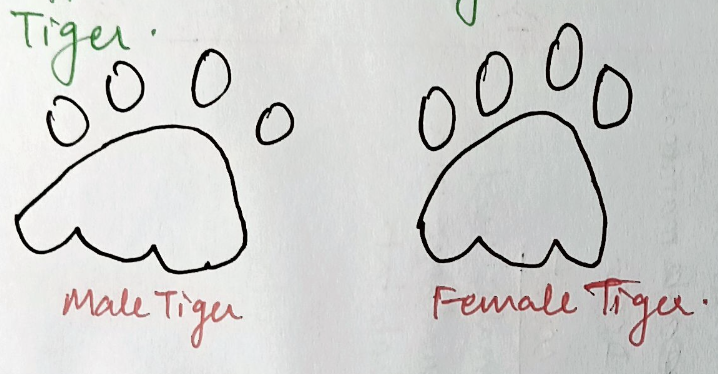 Tiger.
Male Tiger
Female Tiger.